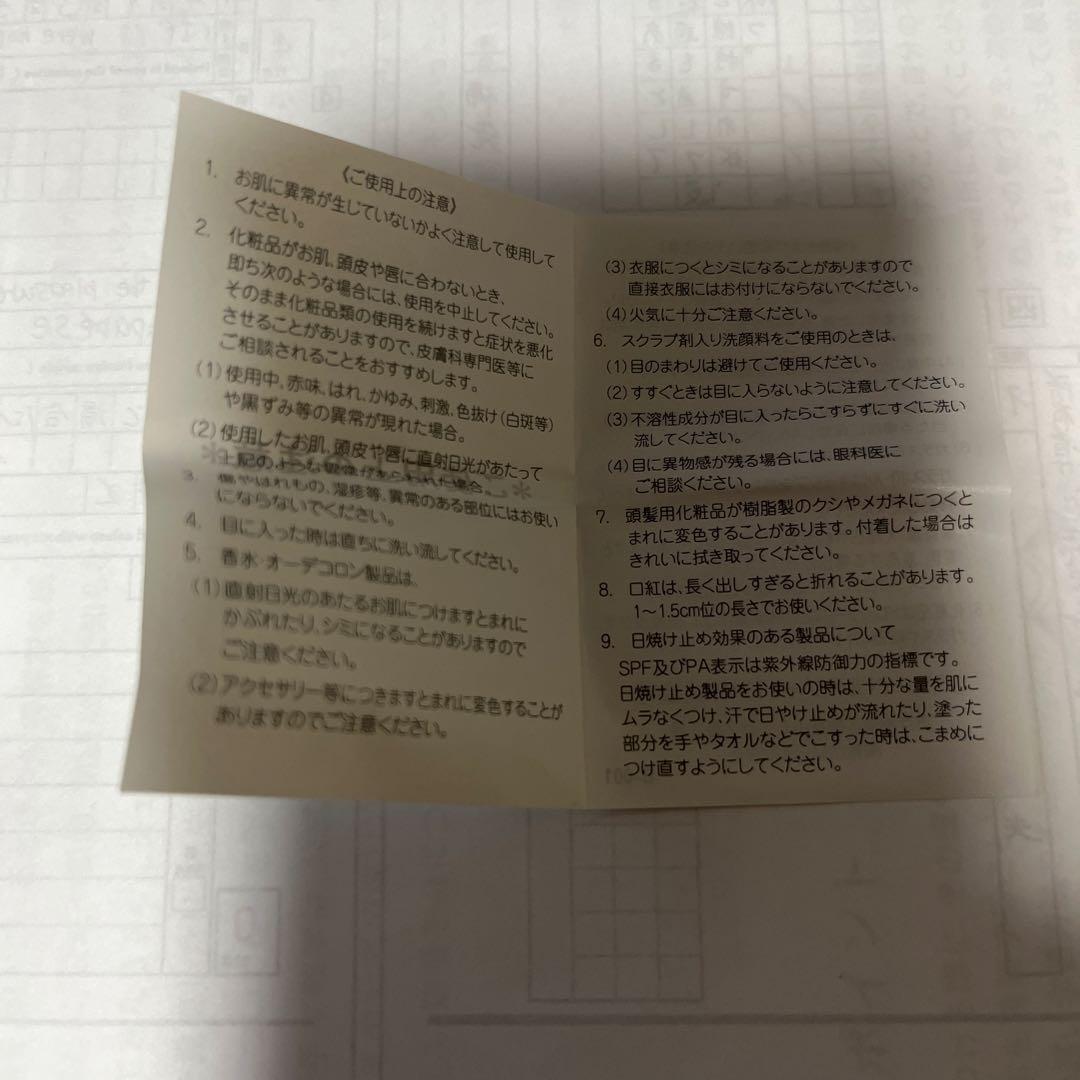 《ご使用上の注意》
1. お肌に異常が生じていないかよく注意して使用して
ください。
2. 化粧品がお肌、頭皮や唇に合わないとき、
即ち次のような場合には、使用を中止してください。
そのまま化粧品類の使用を続けますと症状を悪化
させることがありますので、皮膚科専門医等に
ご相談されることをおすすめします。
(1)使用中、赤味、はれ、かゆみ、刺激、色抜け(白斑等)
や黒ずみ等の異常が現れた場合。
(2)使用したお肌、頭皮や唇に直射日光があたって
上記のような
があらわれた場合。
3. 傷やはれもの、湿疹等、異常のある部位にはお使い
にならないでください。
4. 目に入った時は直ちに洗い流してください。
5. 香水・オーデコロン製品は、
(1)直射日光のあたるお肌につけますとまれに
かぶれたり、シミになることがありますので
ご注意ください。
(2)アクセサリー等につきますとまれに変色することが
ありますのでご注意ください。
(3)衣服につくとシミになることがありますので
直接衣服にはお付けにならないでください。
(4)火気に十分ご注意ください。
6. スクラブ剤入り洗顔料をご使用のときは、
(1)目のまわりは避けてご使用ください。
(2)すすぐときは目に入らないように注意してください。
(3)不溶性成分が目に入ったらこすらずにすぐに洗い
流してください。
(4)目に異物感が残る場合には、眼科医に
ご相談ください。
7. 頭髪用化粧品が樹脂製のクシやメガネにつくと
まれに変色することがあります。付着した場合は
きれいに拭き取ってください。
8. 口紅は、長く出しすぎると折れることがあります。
1～1.5cm位の長さでお使いください。
9. 日焼け止め効果のある製品について
SPF及びPA表示は紫外線防御力の指標です。
日焼け止め製品をお使いの時は、十分な量を肌に
ムラなくつけ、汗で日やけ止めが流れたり、塗った
部分を手やタオルなどでこすった時は、こまめに
つけ直すようにしてください。